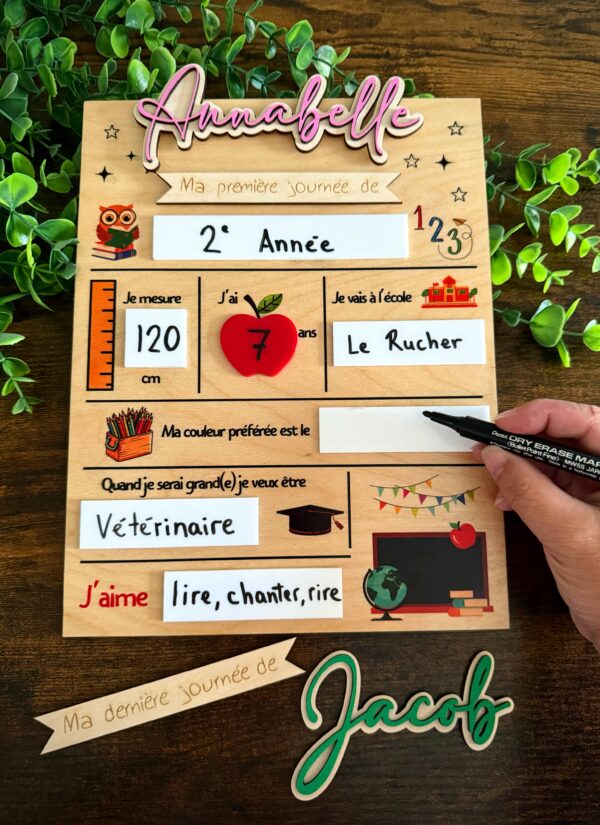 Annabelle
Ma première journée de
2e Année
123
Je mesure
120
cm
J'ai
7
ans
Je vais à l'école
Le Rucher
Ma couleur préférée est le
Pentel DRY ERASE MAR
<Bullet Point・Fine> MW5S JAPA
Quand je serai grand(e) je veux être
Vétérinaire
J'aime
lire, chanter, rire
Ma dernière journée de
Jacob